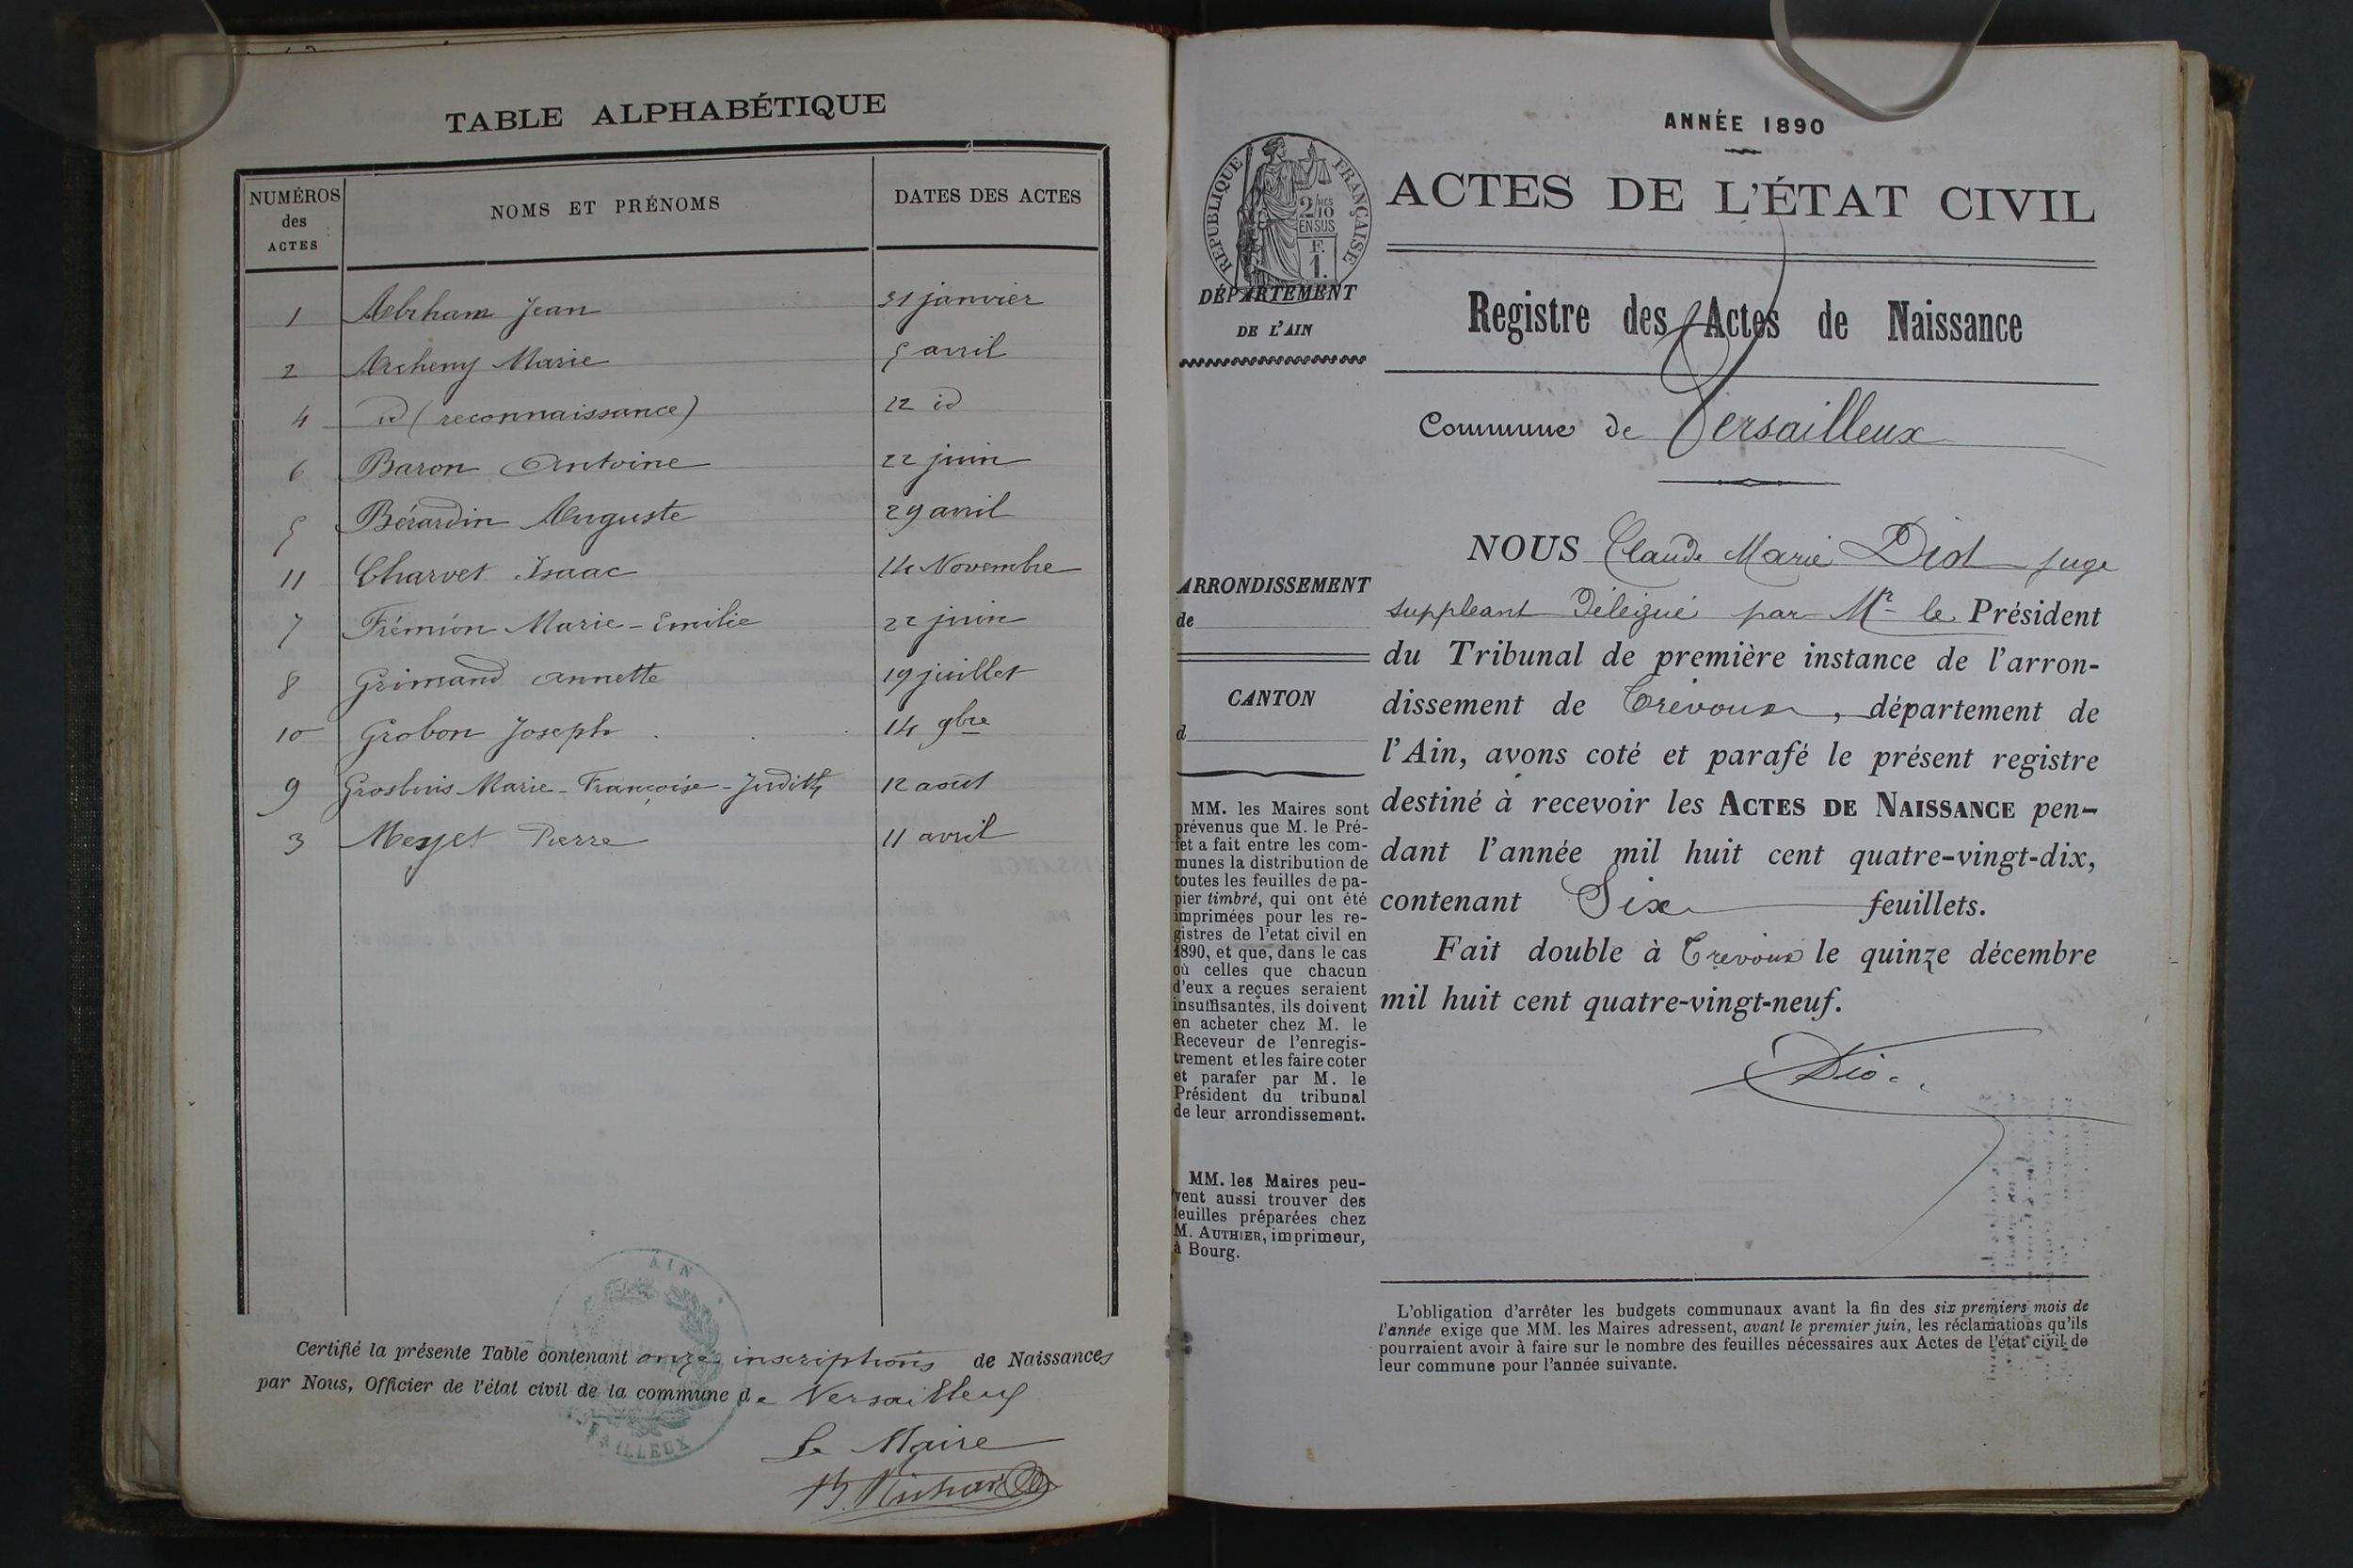 TABLE ALPHABÉTIQUE
NUMÉROS des ACTES
NOMS ET PRÉNOMS
DATES DES ACTES
1 Abrham Jean 31 janvier
2 Archeny Marie 5 avril
4 id (reconnaissance) 22 id
6 Baron Antoine 22 juin
5 Bérardin Auguste 29 avril
11 Charvet Isaac 14 Novembre
7 Frémion Marie-Emilie 22 juin
8 Grimand annette 19 juillet
10 Grobon Joseph 14 9bre
9 Grosbuis Marie-Françoise-Judith 12 août
3 Meyet Pierre 11 avril
Certifié la présente Table contenant onze inscriptions de Naissances
par Nous, Officier de l'état civil de la commune de Versailleux
Le Maire
AIN
ILLEUX
ANNÉE 1890
RÉPUBLIQUE FRANÇAISE
2/10MES
EN SUS
F.
1.
ACTES DE L'ÉTAT CIVIL
DÉPARTEMENT
DE L'AIN
Registre des Actes de Naissance
Commune de Versailleux
ARRONDISSEMENT
de
CANTON
d
MM. les Maires sont
prévenus que M. le Pré-
fet a fait entre les com-
munes la distribution de
toutes les feuilles de pa-
pier timbré, qui ont été
imprimées pour les re-
gistres de l'etat civil en
1890, et que, dans le cas
où celles que chacun
d'eux a reçues seraient
insuffisantes, ils doivent
en acheter chez M. le
Receveur de l'enregis-
trement et les faire coter
et parafer par M. le
Président du tribunal
de leur arrondissement.
MM. les Maires peu-
vent aussi trouver des
feuilles préparées chez
M. AUTHIER, imprimeur,
à Bourg.
NOUS Claude Marie Diot juge
suppleant Délégué par Mr le Président
du Tribunal de première instance de l'arron-
dissement de Trévoux, département de
l'Ain, avons coté et parafé le présent registre
destiné à recevoir les ACTES DE NAISSANCE pen-
dant l'année mil huit cent quatre-vingt-dix,
contenant Six feuillets.
Fait double à Trevoux le quinze décembre
mil huit cent quatre-vingt-neuf.
Dio
L'obligation d'arrêter les budgets communaux avant la fin des six premiers mois de
l'année exige que MM. les Maires adressent, avant le premier juin, les réclamations qu'ils
pourraient avoir à faire sur le nombre des feuilles nécessaires aux Actes de l'état civil de
leur commune pour l'année suivante.